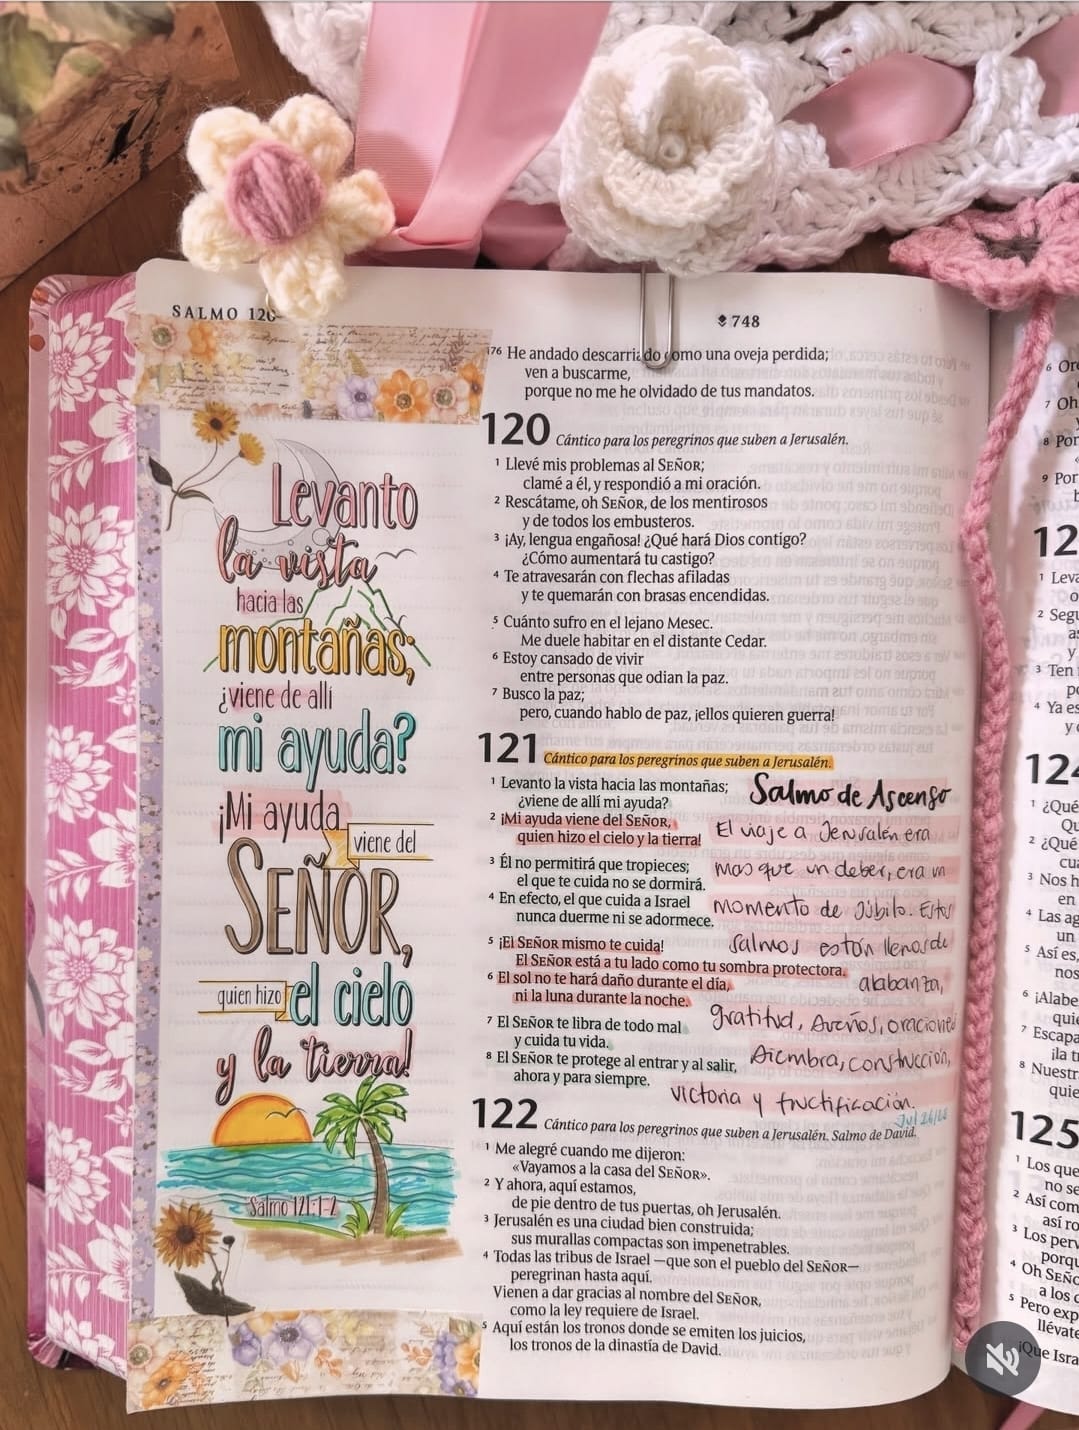 SALMO 120
748
Levanto
la vista
hacia las
montañas;
¿viene de allí
mi ayuda?
¡Mi ayuda
viene del
SEÑOR,
quien hizo
el cielo
y la tierra!
Salmo 121:1-2
176 He andado descarriado como una oveja perdida;
ven a buscarme,
porque no me he olvidado de tus mandatos.
120 Cántico para los peregrinos que suben a Jerusalén.
1 Llevé mis problemas al SEÑOR;
clamé a él, y respondió a mi oración.
2 Rescátame, oh SEÑOR, de los mentirosos
y de todos los embusteros.
3 ¡Ay, lengua engañosa! ¿Qué hará Dios contigo?
¿Cómo aumentará tu castigo?
4 Te atravesarán con flechas afiladas
y te quemarán con brasas encendidas.
5 Cuánto sufro en el lejano Mesec.
Me duele habitar en el distante Cedar.
6 Estoy cansado de vivir
entre personas que odian la paz.
7 Busco la paz;
pero, cuando hablo de paz, ¡ellos quieren guerra!
121 Cántico para los peregrinos que suben a Jerusalén.
1 Levanto la vista hacia las montañas;
¿viene de allí mi ayuda?
2 ¡Mi ayuda viene del SEÑOR,
quien hizo el cielo y la tierra!
3 Él no permitirá que tropieces;
el que te cuida no se dormirá.
4 En efecto, el que cuida a Israel
nunca duerme ni se adormece.
5 ¡El SEÑOR mismo te cuida!
El SEÑOR está a tu lado como tu sombra protectora.
6 El sol no te hará daño durante el día,
ni la luna durante la noche.
7 El SEÑOR te libra de todo mal
y cuida tu vida.
8 El SEÑOR te protege al entrar y al salir,
ahora y para siempre.
Salmo de Ascenso
El viaje a Jerusalén era
mas que un deber, era un
momento de Júbilo. Estos
Salmos están llenos de
alabanza,
gratitud, sueños, oraciones
siembra, construcción,
victoria y fructificación.
122 Cántico para los peregrinos que suben a Jerusalén. Salmo de David.
1 Me alegré cuando me dijeron:
«Vayamos a la casa del SEÑOR».
2 Y ahora, aquí estamos,
de pie dentro de tus puertas, oh Jerusalén.
3 Jerusalén es una ciudad bien construida;
sus murallas compactas son impenetrables.
4 Todas las tribus de Israel —que son el pueblo del SEÑOR—
peregrinan hasta aquí.
Vienen a dar gracias al nombre del SEÑOR,
como la ley requiere de Israel.
5 Aquí están los tronos donde se emiten los juicios,
los tronos de la dinastía de David.
6
7 Oh
8 Por
9 Por
12
1
2
3 Ten
4 Ya es
y
124
1 ¿Qué
2 ¿Qué
3 Nos h
en
4 Las ag
un
5 Así es,
nos
6 ¡Alabe
7 Escapa
¡la
8 Nuestr
125
1 Los que
no se
2 Así com
así ro
3
4
5 Pero exp